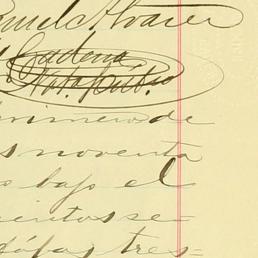 Alvarez
Cadena
Not. Pub.
primero de
s noventa
s bajo el
cientos se-
tres-